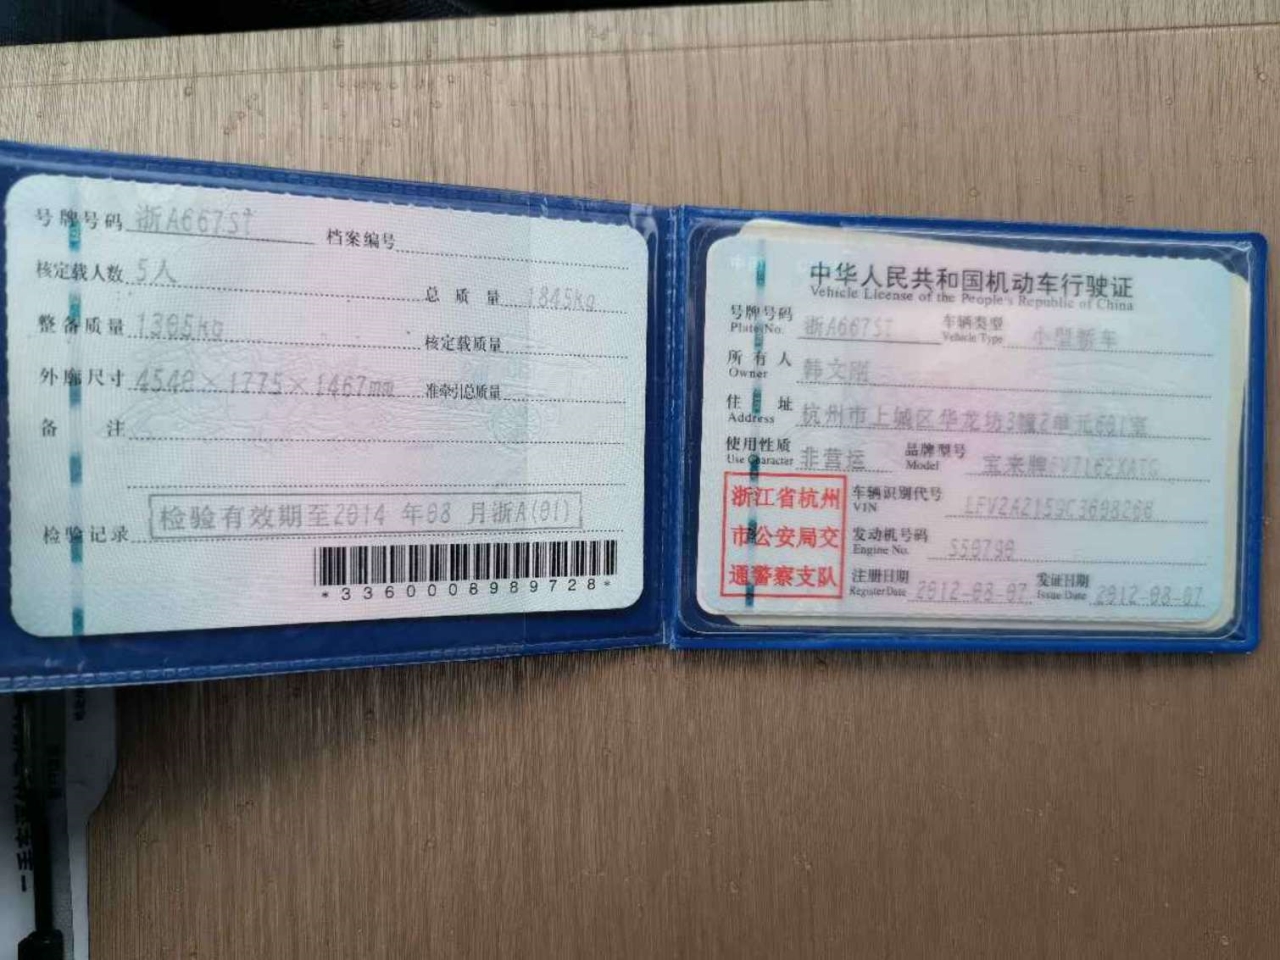 号牌号码 浙A667S 档案编号
核定载人数 5人 总质量 1845kg
整备质量 1305kg 核定载质量
外廓尺寸 4540×1775×1467mm 准牵引总质量
备注
检验记录 检验有效期至2014 年08 月浙A(01)
*3360008989728*
中华人民共和国机动车行驶证
Vehicle License of the People's Republic of China
号牌号码 浙A667S 车辆类型 小型轿车
Plate No. Vehicle Type
所有人 韩文刚
Owner
住址 杭州市上城区华龙坊3幢2单元601室
Address
使用性质 非营运 品牌型号 宝来牌FV7162XATG
Use Character Model
浙江省杭州
市公安局交
通警察支队
车辆识别代号
VIN
发动机号码 S50790
Engine No.
注册日期 2012-08-07 发证日期 2012-08-07
Register Date Issue Date